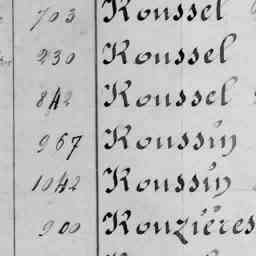 703 Roussel
230 Roussel
842 Roussel
967 Roussin
1042 Roussin
900 Rouzières